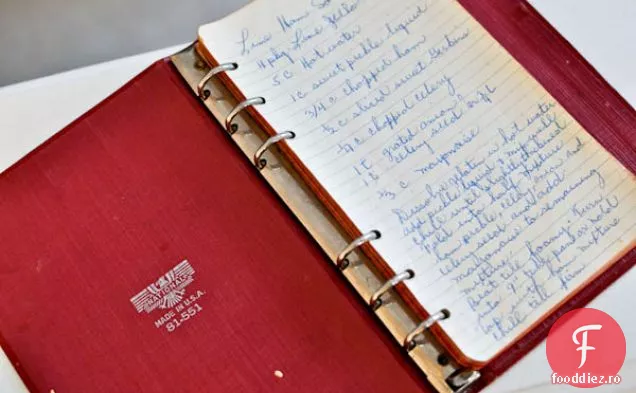 NATIONAL
MADE IN U.S.A.
81-551
Lime Ham
4 pkg Lime Jello
5 c Hot water
1 c sweet pickle liquid
3/4 c chopped ham
1/2 c sliced sweet
1/4 c chopped celery
1 t grated onion
1 t celery seed
2/3 c mayonaise
Dissolve gelatin in hot water
add pickle liquid
chill until slightly thickened
Fold into half mixture
ham, pickle, celery, onion and
celery seed and add
mayonaise to remaining
mixture
Beat till foamy.
into 9 in
top with ham mixture
chill till firm
fooddiez.ro